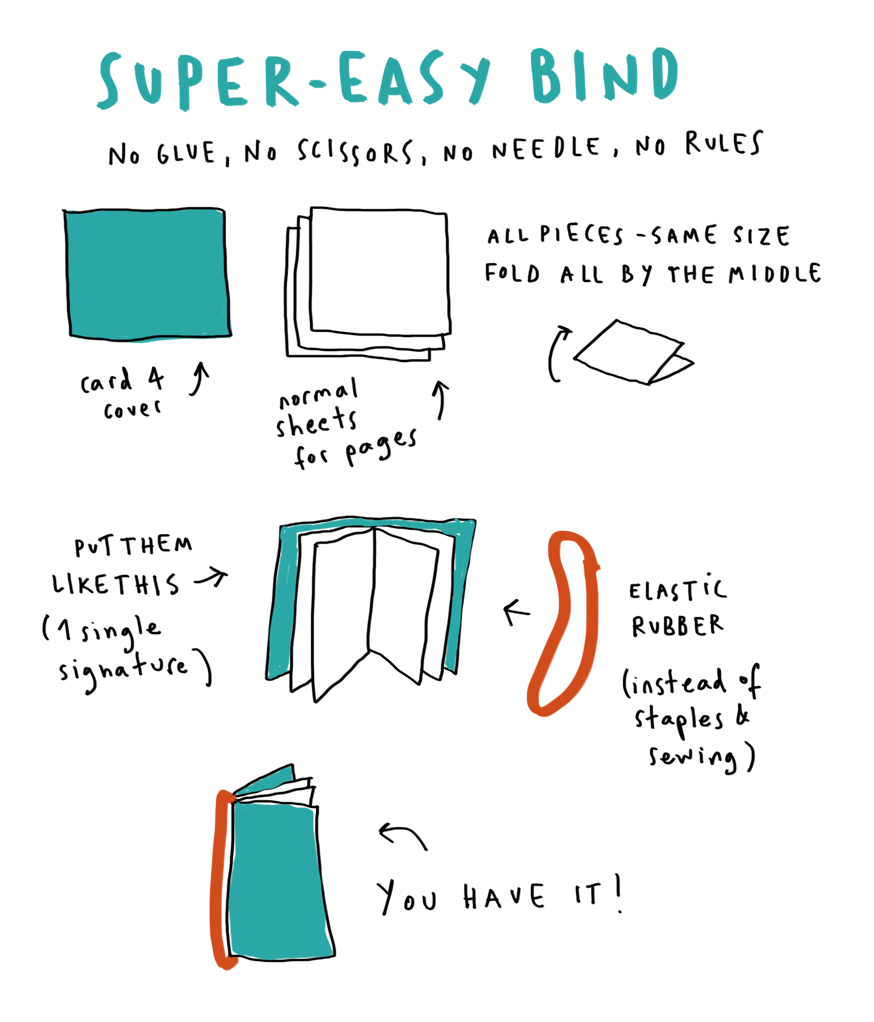 SUPER-EASY BIND
NO GLUE, NO SCISSORS, NO NEEDLE, NO RULES
ALL PIECES - SAME SIZE
FOLD ALL BY THE MIDDLE
card 4
cover
normal
sheets
for pages
PUT THEM
LIKE THIS
(1 single
signature)
ELASTIC
RUBBER
(instead of
staples &
sewing)
YOU HAVE IT!